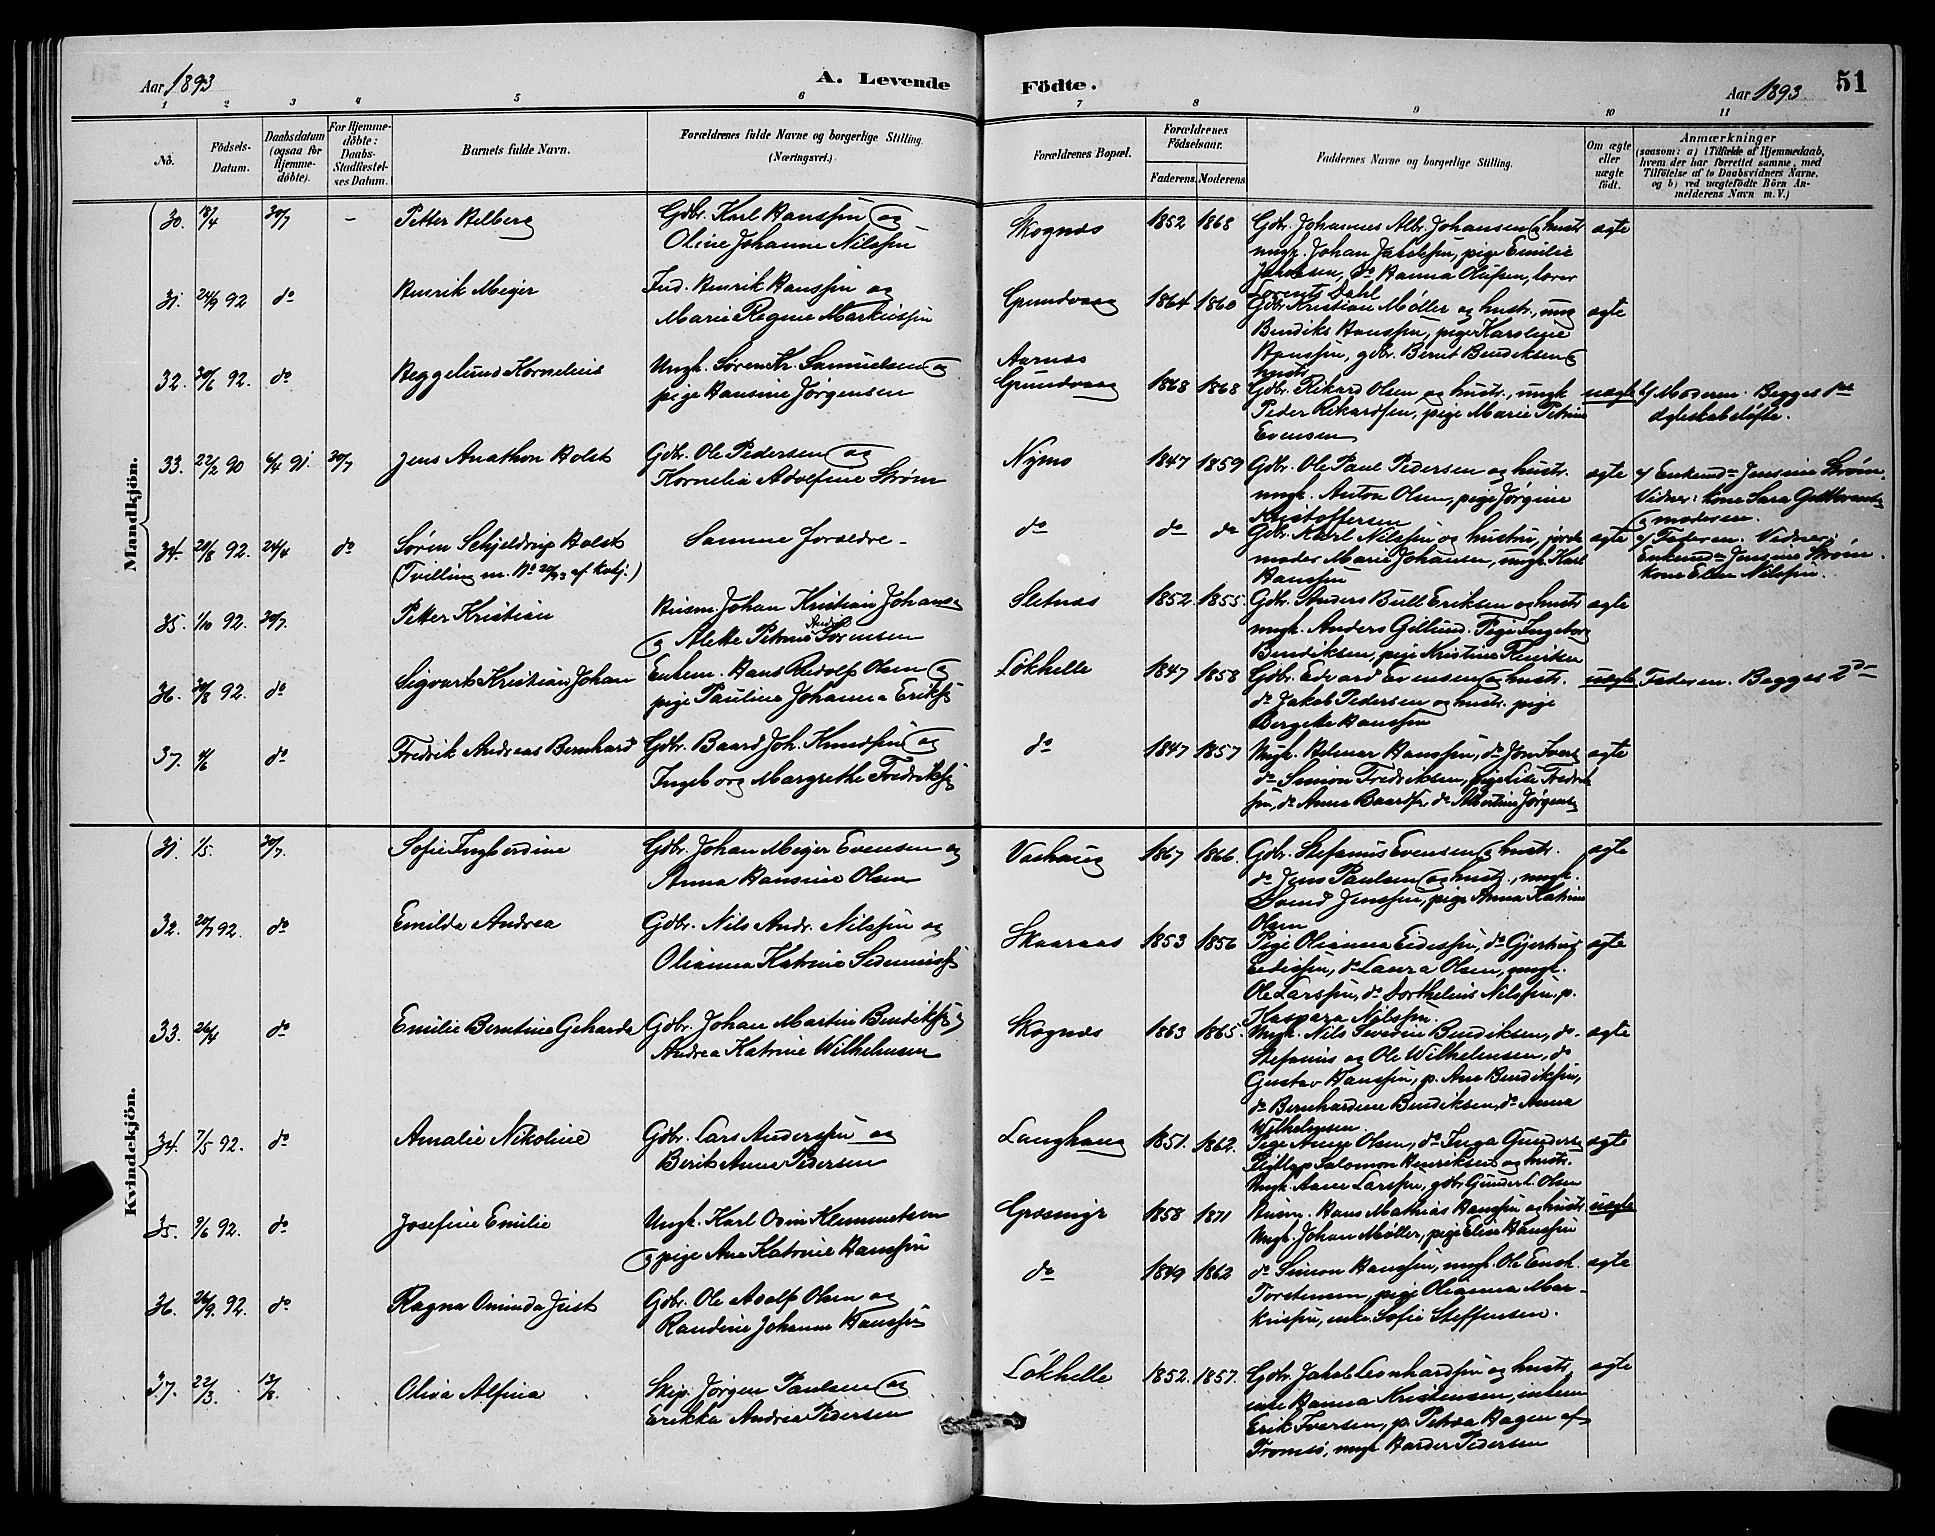 Aar 1893
A. Levende
Födte.
Aar 1893
51
1 2 3 4 5 6 7 8 9 10 11
No.
Födsels-
Datum.
Daabsdatum
(ogsaa for
Hjemme-
döbte).
For Hjemme-
döbte:
Daabs-
Stadfæstel-
ses Datum.
Barnets fulde Navn.
Forældrenes fulde Navne og borgerlige Stilling.
(Næringsvei.)
Forældrenes Bopæl.
Forældrenes
Födselsaar.
Faderens. Moderens.
Faddernes Navne og borgerlige Stilling.
Om ægte
eller
uægte
født.
Anmærkninger
(saasom: a) i Tilfælde af Hjemmedaab,
hvem der har forrettet samme, med
Tilföielse af to Daabsvidners Navne,
og b) ved uægtefödte Börn An-
melderens Navn m.V.)
Mandkjön.
30. 18/4 30/7 - Petter Helberg
Gdbr. Karl Hanssen og
Oline Johanne Nilssen
Skognæs 1852 1868
Gdbr. Johannes Alb. Johansen og hustr
ungk. Johan Jakobssen, pige Emilie
Jakobsen, do Hanna Olufsen, lærer
Lorents Dahl
ægte
31. 24/9 92 do Henrik Meyer
Ind. Henrik Hanssen og
Marie Regine Markussen
Grundvaag 1864 1860
Gdbr. Kristian Møller og hustr., ung
Bendiks Hanssen, pige Karoline
Hanssen, gdbr. Bernt Bendiksen og
hustr
ægte
32. 30/6 92. do Heggelund Kornelius
Ungk. Søren Kr. Samuelsen og
pige Hansine Jørgensen
Aarnæs
Grundvaag 1868 1868
Gdbr. Rikard Olsen og hustr., ungk
Peder Rikardsen, pige Marie Petrine
Evensen
uægte
b/ Moderen. Begges 1ste
ægteskabsløfte.
33. 22/2 90 6/4 91. 30/7 Jens Anathon Holst
Gdbr. Ole Pedersen og
Kornelia Adolfine Strøm
Nymo 1847 1859
Gdbr. Ole Paul Pedersen og hustr.
ungk. Anton Olsen, pige Jørgine
Kristoffersen
ægte
a/ Enkemd. Jensine Strøm.
Vidner: kone Sara
og moderen.
34. 20/8 92. 24/4 do Søren Schjeldrup Holst
(Tvilling m. No 20/93 af Kvkj.)
Samme forældre
do do do
Gdbr. Karl Nilssen og hustru, jorde
moder Marie Johansen, ungk. Karl
Hanssen
ægte
a/ Faderen. Vidner:
Enkemd Jensine Strøm.
kone Ellen Nilssen.
35. 1/10 92. 30/7. Petter Kristian
Husm. Johan Kristian Johans.
og Alette Petrine Andr. Sørensen
Sletnæs 1852. 1855.
Gdbr. Anders Bull Eriksen og hustr
ungk. Anders Gillund. Pige Ingeborg
Bendiksen, pige Kristine Henriksen
ægte
36. 30/8 92. do Sigvart Kristian Johan
Enkem. Hans Redolf Olsen og
pige Pauline Johanna Eriks.
Løkhelle 1847 1858
Gdbr. Edvard Evensen og hustr.
do Jakob Pedersen og hustr. pige
Bergette Hanssen
uægte
Faderen. Begges 2de
37. 4/6 do Fredrik Andreas Bernhard
Gdbr. Baard Joh. Knudsen og
Ingeborg Margrethe Fredriks.
do 1847 1857
Ungk. Helmer Hanssen, do Jon Ivers.
do Simon Fredriksen, pige Lise Fredrik
sen, do Anna Baards., do Albertine Jørgens.
ægte
Kvindekjön.
31. 1/5. 30/7. Sofie Ingberdine
Gdbr. Johan Meyer Evensen og
Anna Hansine Olsen
Vashaug 1867 1866.
Gdbr. Stefanus Evensen og hustr.
do Jens Paulsen og hustr., ungk.
Svend Jenssen, pige Anna Katrine
Olsen
ægte
32. 20/7 92. do Emilda Andrea
Gdbr. Nils Andr. Nilssen og
Olianna Katrine
Skaaraas 1853 1856
Pige Olianna Eidissen, do Gjertrud
Eidissen, do Laura Olsen, ungk.
Ole Larssen, do Dorthelius Nilssen, p.
Kaspara Nilssen.
ægte
33. 26/4 do Emilie Berntine Geharda
Gdbr. Johan Martin Bendiks. og
Andrea Katrine Wilhelmsen
Skognæs 1863 1865.
Ungk. Nils Severin Bendiksen, do
Stefanus og Ole Wilhelmsen, do
Gustav Hanssen, p. Ane Bendiksen,
do Bernhardine Bendiksen, do Anna
Wilhelmsen.
ægte
34. 7/5 92. do Amalie Nikoline
Gdbr. Lars Anderssen og
Berit Anna Pedersen
Langhaug 1851. 1862.
Pige Anne Olsen, do Inga Gunders.
Salomon Henriksen og hustr.
Ungk. Aane Larssen, gdbr. Olsen
ægte
35. 9/6 92. do Josefine Emilie
Ungk. Karl Ovin Klemmetsen
og pige Ane Katrine Hanssen
Græsmyr 1858 1871
Husm. Hans Mathias Hanssen og hustr.
Ungk. Johan Møller, pige Elise Hanssen
uægte
36. 26/9. 92. do Ragna Ominda Just
Gdbr. Ole Adolf Olsen og
Randine Johanne Hanssen
do 1849 1862
do Simon Hanssen, ungk. Ole Enok
Torstensen, pige Olianna Mar-
kussen, enke Sofie Steffensen.
ægte
37. 22/3. 13/8. Olisa Alfina
Skip. Jørgen Paulsen og
Erikka Andrea Pedersen
Løkhelle 1852. 1857.
Gdbr. Jakob Leonhardsen og hustr
enke Hanna Kristensen, enkem
Erik Iversen, p. Petra Hagen af
Tromsø, ungk. Harder Pedersen
ægte